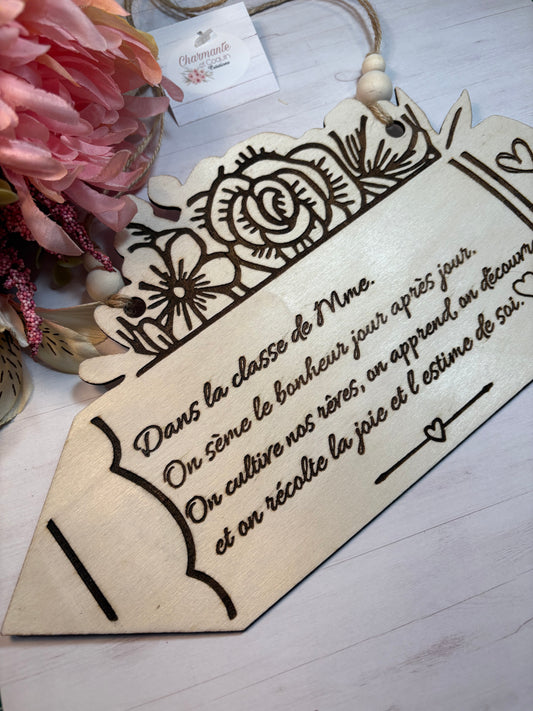 Charmante
et Coquin
Créations
Dans la classe de Mme.
On sème le bonheur jour après jour.
On cultive nos rêves, on apprend, on découvre
et on récolte la joie et l estime de soi.